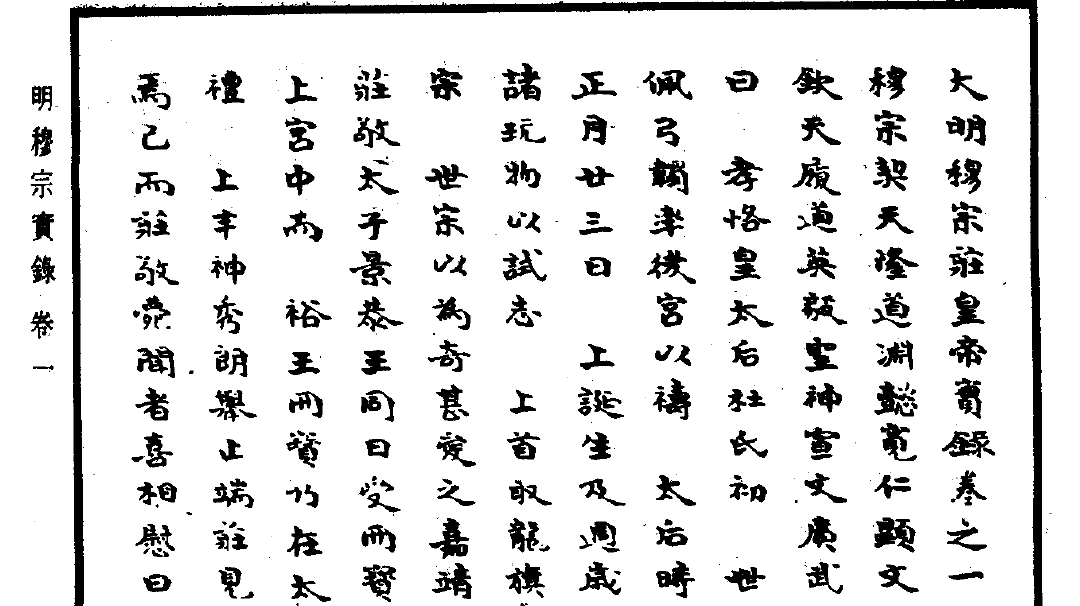 大明穆宗莊皇帝實錄卷之一
穆宗契天隆道淵懿寬仁顯文
欽天履道英毅聖神宣文廣武
曰 孝恪皇太后杜氏初 世
佩弓韣率禖宮以禱 太后時
正月廿三日 上誕生及週歲
諸玩物以試志 上首取龍旗
宗 世宗以為奇甚愛之嘉靖
莊敬太子景恭王同日受冊寶
上宮中而 裕王冊寶乃在太
禮 上丰神秀朗舉止端莊見
焉已而莊敬薨聞者喜相慰曰
明穆宗實錄卷一